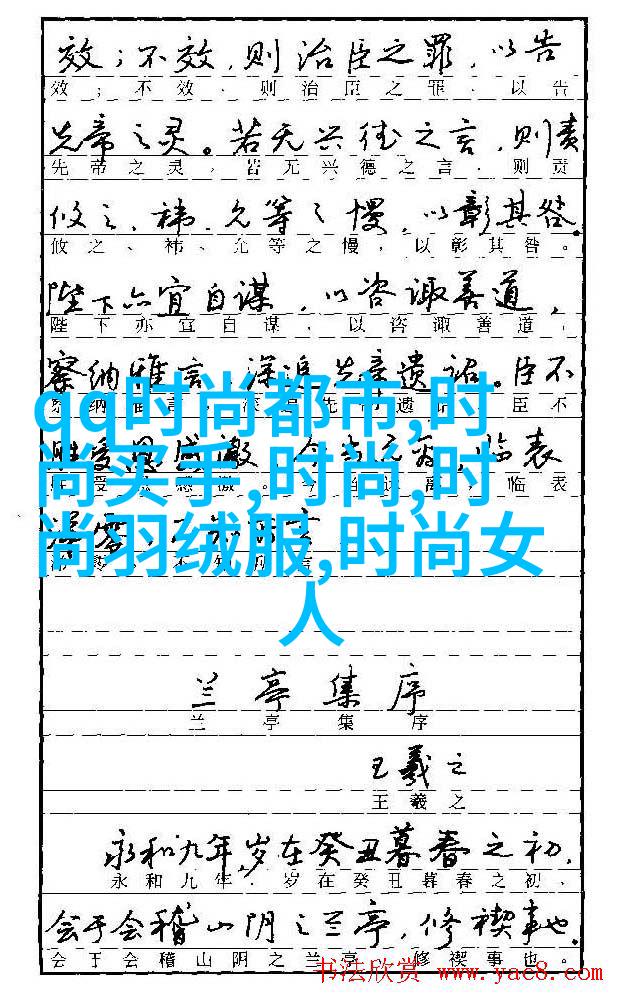 效；不效，则治臣之罪，以告
效；不效、则治臣之罪、以告
先帝之灵。若无兴德之言，则责
先帝之灵，若无兴德之言、则责
攸之、祎、允等之慢，以彰其咎。
攸之、祎、允等之慢，以彰其咎。
陛下亦宜自谋，以咨诹善道，
陛下亦宜自谋，以咨诹善道，
察纳雅言，深追先帝遗诏。臣不
qq时尚都市,时
尚买手,时尚,时
尚羽绒服,时尚女
人
兰亭集序
兰亭集序
王羲之
王羲之
永和九年,岁在癸丑暮春之初,
永和九年，岁在癸丑暮春之初、
会于会稽山阴之兰亭，修禊事也。
会于会稽山阴之兰亭，修禊事也。
书法欣赏 www.yac8.com